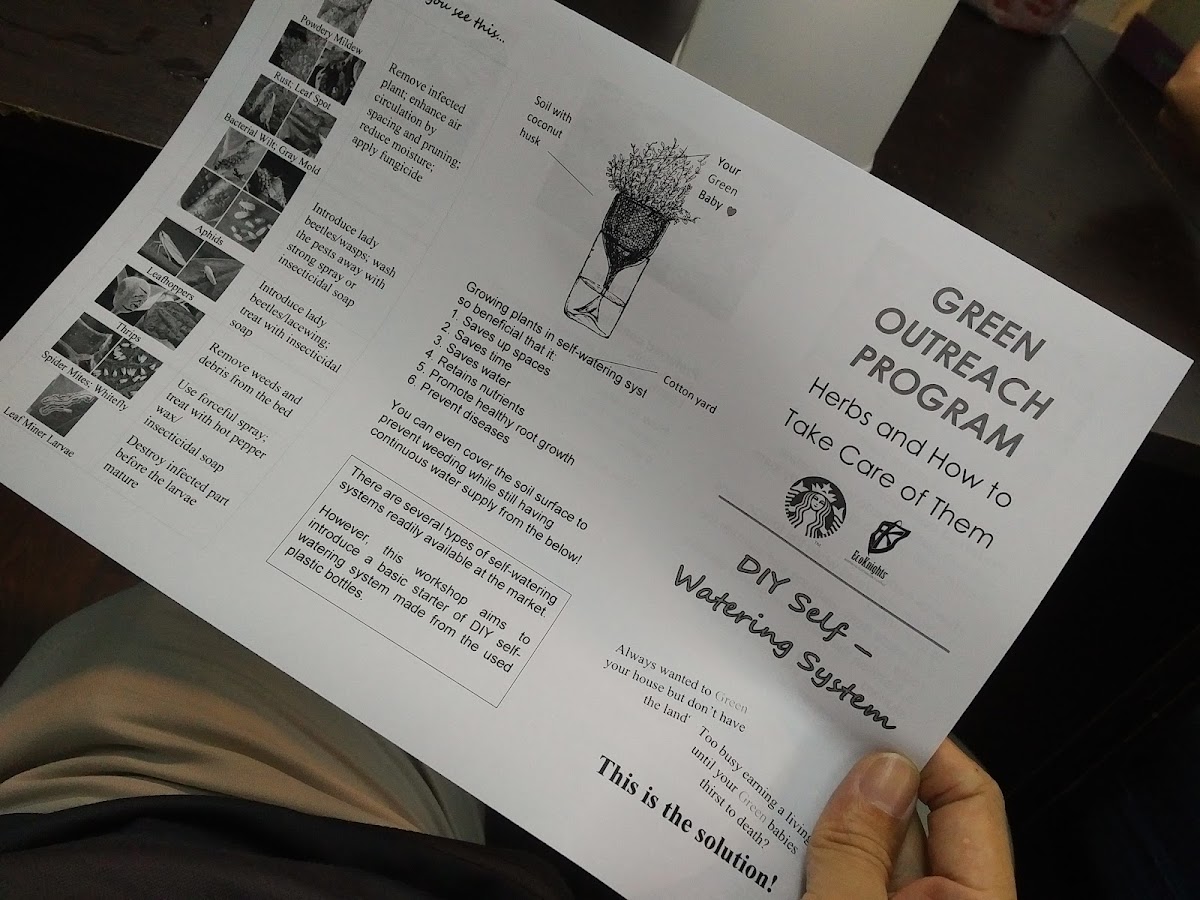 you see this...
Powdery Mildew
Rust; Leaf Spot
Bacterial Wilt; Gray Mold
Aphids
Leafhoppers
Thrips
Spider Mites; Whitefly
Leaf Miner Larvae
Remove infected
plant; enhance air
circulation by
spacing and pruning;
reduce moisture;
apply fungicide
Introduce lady
beetles/wasps; wash
the pests away with
strong spray or
insecticidal soap
Introduce lady
beetles/lacewing;
treat with insecticidal
soap
Remove weeds and
debris from the bed
Use forceful spray;
treat with hot pepper
wax/
insecticidal soap
Destroy infected part
before the larvae
mature
Soil with
coconut
husk
Your
Green
Baby ♥
Cotton yard
Growing plants in self-watering syst
so beneficial that it:
1. Saves up spaces
2. Saves time
3. Saves water
4. Retains nutrients
5. Promote healthy root growth
6. Prevent diseases
You can even cover the soil surface to
prevent weeding while still having
continuous water supply from the below!
There are several types of self-watering
systems readily available at the market.
However, this workshop aims to
introduce a basic starter of DIY self-
watering system made from the used
plastic bottles.
GREEN
OUTREACH
PROGRAM
Herbs and How to
Take Care of Them
EcoKnights
DIY Self –
Watering System
Always wanted to Green
your house but don't have
the land?
Too busy earning a living
until your Green babies
thirst to death?
This is the solution!